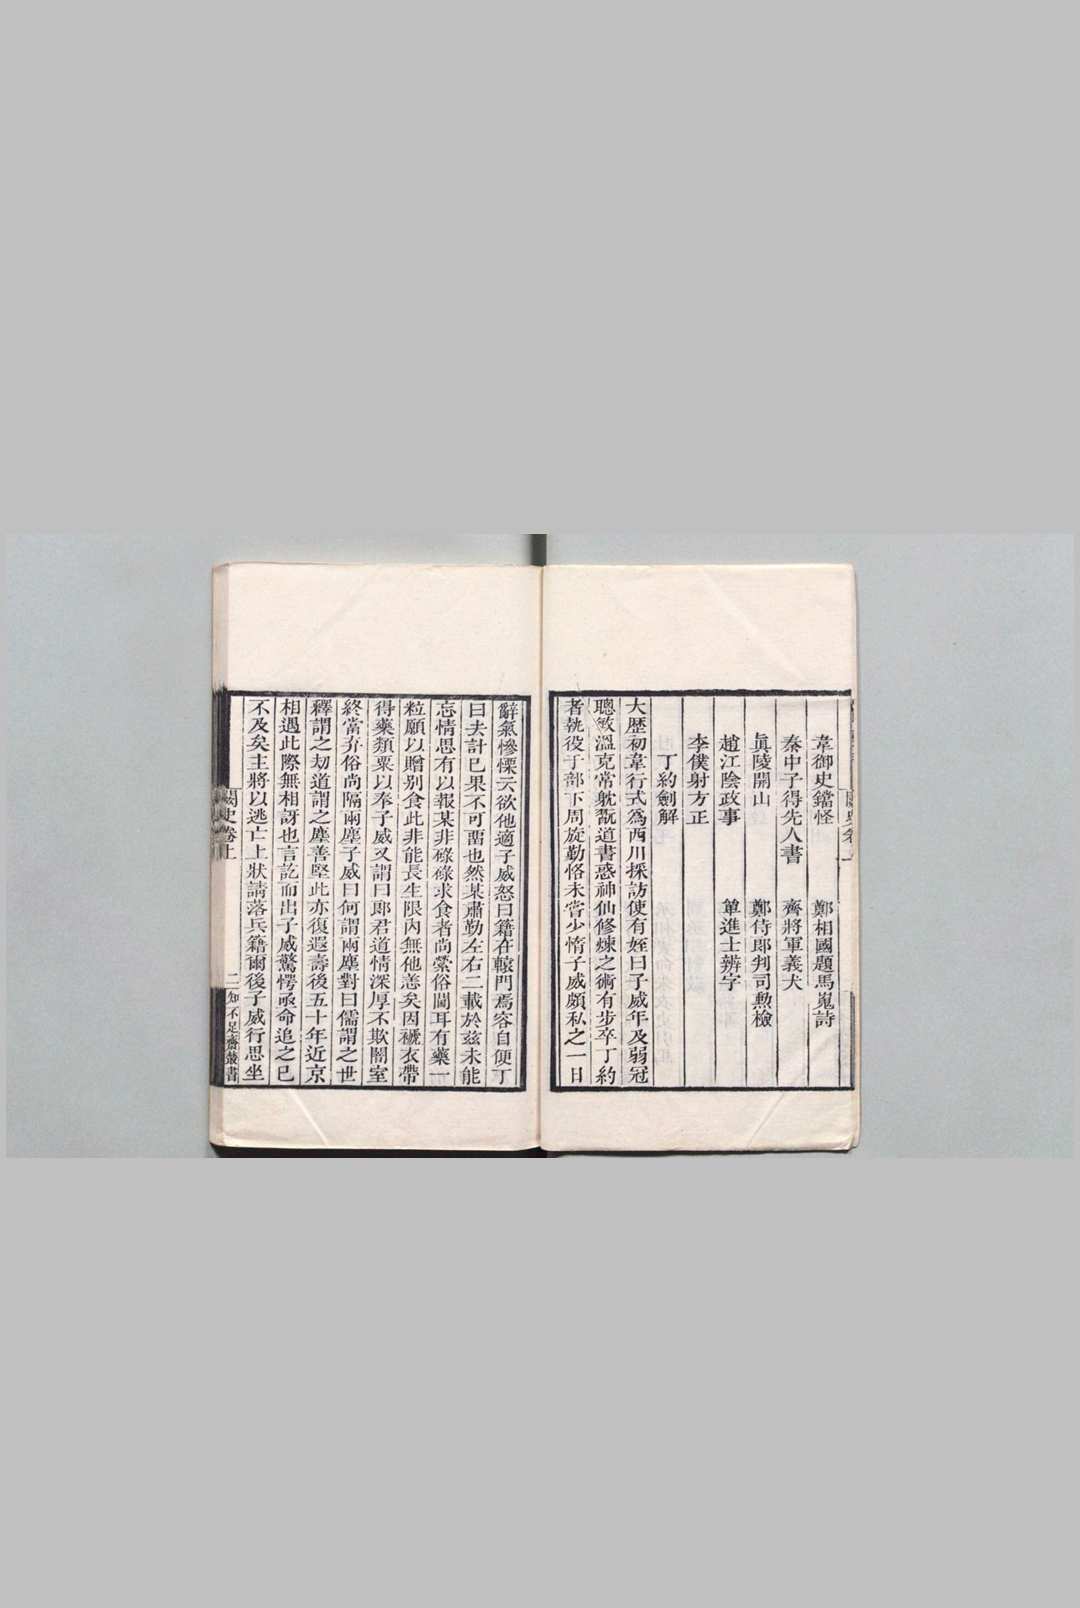 韋御史鐺怪　鄭相國題馬嵬詩
秦中子得先人書　齊將軍義犬
眞陵開山　鄭侍郎判司勲檢
趙江陰政事　單進士辨字
李僕射方正
丁約劍解
大歷初韋行式爲西川採訪使有姪曰子威年及弱冠
聰敏溫克常躭翫道書惑神仙修煉之術有步卒丁約
者執役于部下周旋勤恪未嘗少惰子威頗私之一日
辭氣慘慄云欲他適子威怒曰籍在轅門焉容自便丁
曰去計已果不可畱也然某肅勤左右二載於兹未能
忘情思有以報某非碌碌求食者尚縈俗閫耳有藥一
粒願以贈别食此非能長生限内無他恙矣因褫衣帶
得藥類粟以奉子威又謂曰郎君道情深厚不欺闇室
終當弃俗尚隔兩塵子威曰何謂兩塵對曰儒謂之世
釋謂之刼道謂之塵善堅此亦復遐壽後五十年近京
相遇此際無相訝也言訖而出子威驚愕亟命追之已
不及矣主將以逃亡上狀請落兵籍爾後子威行思坐
闕史卷上　二　知不足齋叢書